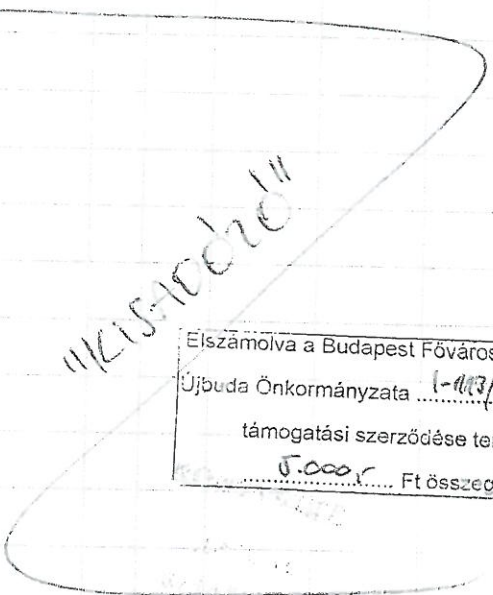 "KISADÓZÓ"
Elszámolva a Budapest Főváros
Újbuda Önkormányzata
támogatási szerződése te
5.000,- Ft összeg